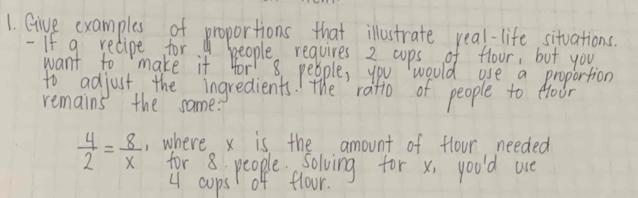 1. Give examples of proportions that illustrate real-life situations.
- If a recipe for 4 people requires 2 cups of flour, but you
want to make it for 8 people, you would use a proportion
to adjust the ingredients. The ratio of people to flour
remains the same:
4/2 = 8/x, where x is the amount of flour needed
for 8 people. Solving for x, you'd use
4 cups of flour.